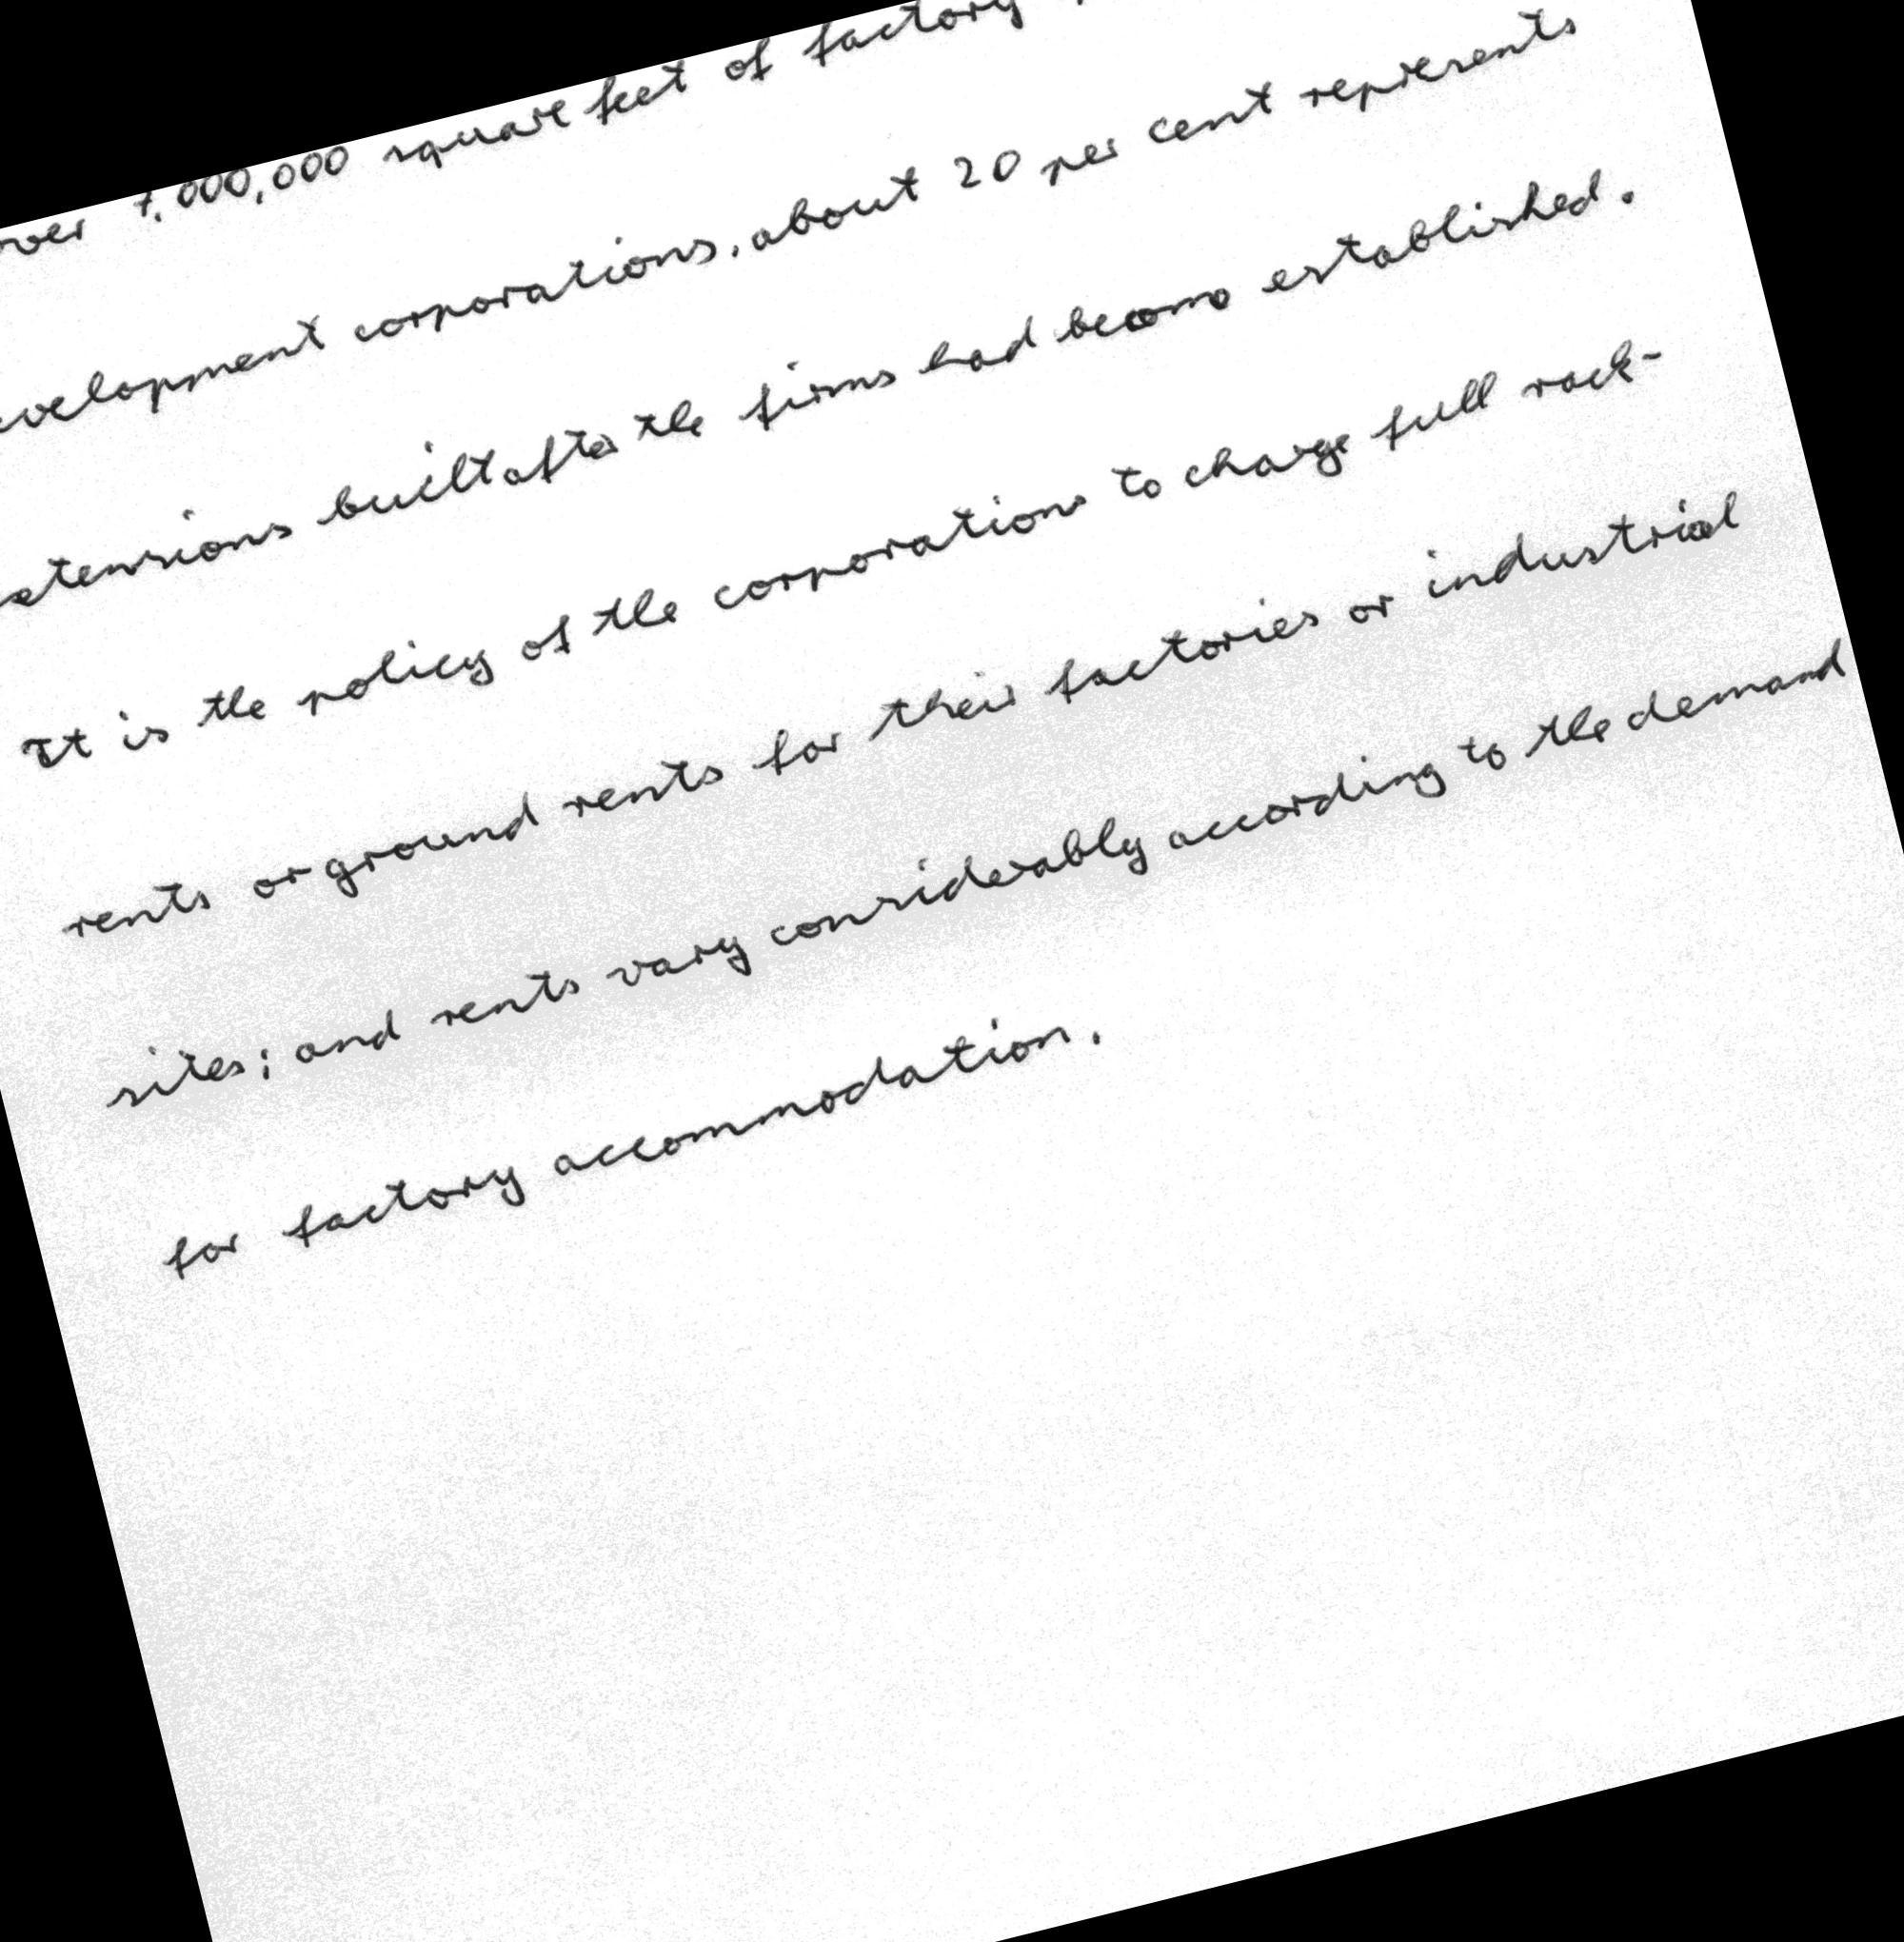 over 7,000,000 square feet of factory
development corporations, about 20 per cent represents
extensions built after the firms had become established.
It is the policy of the corporations to charge full rack-
rents or ground rents for their factories or industrial
sites; and rents vary considerably according to the demand
for factory accommodation.